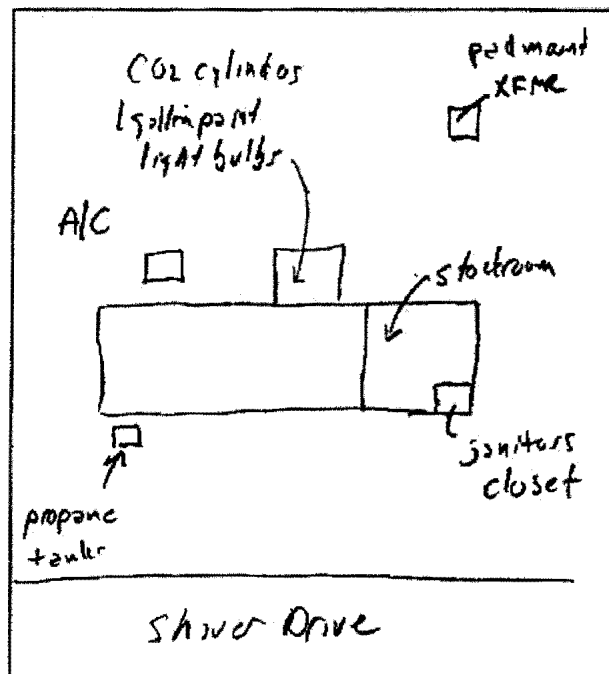 CO2 cylinders
1 gallon paint
light bulbs
padmount
XFMR
A/C
stockroom
janitors
closet
propane
tanks
Drive